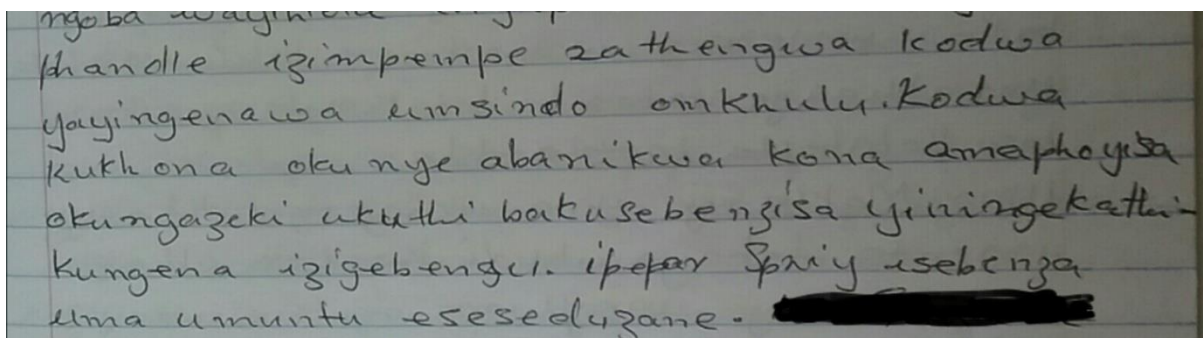 ngoba
phandle izimpempe zathengwa kodwa
yayingenawa umsindo omkhulu. Kodwa
kukhona okunye abanikwa kona amaphoyisa
okungazeki ukuthi bakusebenzisa yiningekathi-
kungena izigebengu. ipepar Spriy isebenza
uma umuntu eseseduzane.